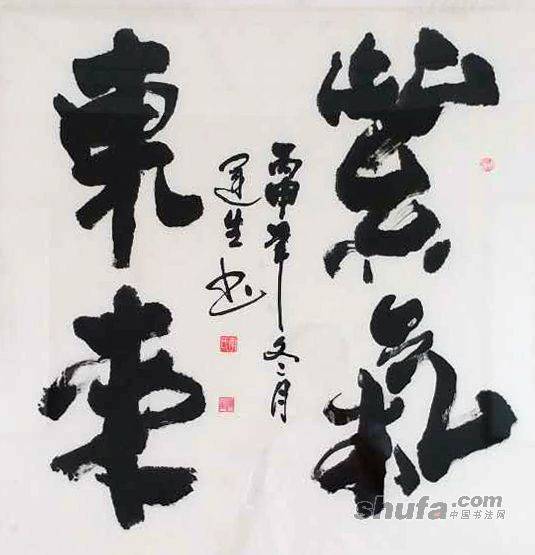 紫氣
東來
丙申年冬月
運生书
shufa.com
中国书法网